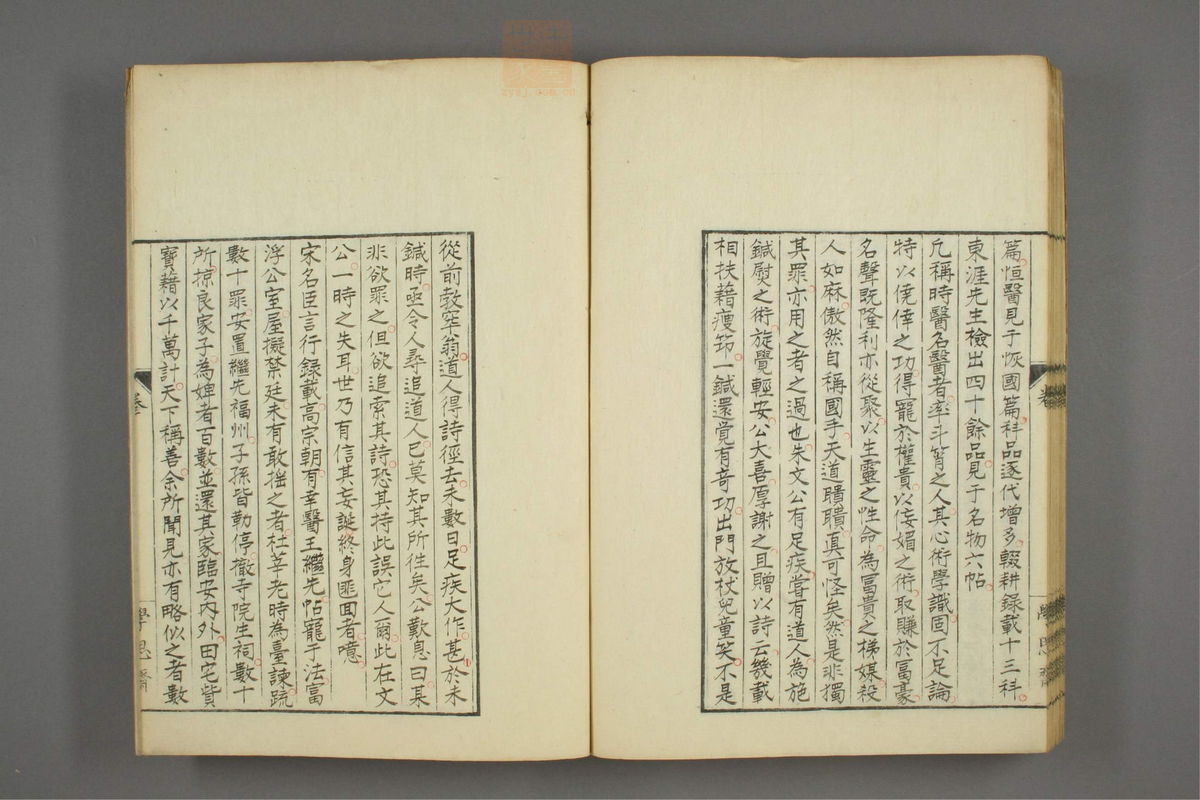 篇恒醫見于恢國篇科品逐代增多輟耕錄載十三科
東涯先生檢出四十餘品見于名物六帖
凡稱時醫名醫者率斗筲之人其心術學識固不足論
特以僥倖之功得寵於權貴以佞媚之術取賺於富豪
名聲既隆利亦從聚以生靈之性命為冨貴之梯媒殺
人如麻傲然自稱國手天道聵聵真可怪矣然是非獨
其罪亦用之者之過也朱文公有足疾嘗有道人為施
鍼熨之術旋覺輕安公大喜厚謝之且贈以詩云幾載
相扶藉瘦笻一鍼還覚有奇功出門放杖兒童笑不是
從前勃窣翁道人得詩徑去未數日足疾大作甚於未
鍼時亟令人尋追道人已莫知其所往矣公歎息曰某
非欲罪之但欲追索其詩恐其持此誤它人爾此在文
公一時之失耳世乃有信其妄誕終身匪囬者噫
宋名臣言行錄載高宗朝有幸醫王繼先怙寵于法富
浮公室屋擬禁廷未有敢搖之者杜莘老時為臺諫疏
數十罪安置繼先福州子孫皆勒停撤寺院生祠數十
所掠良家子為婢者百數並還其家臨安内外田宅貲
寶藉以千萬計天下稱善余所聞見亦有略似之者數
卷
學思齋